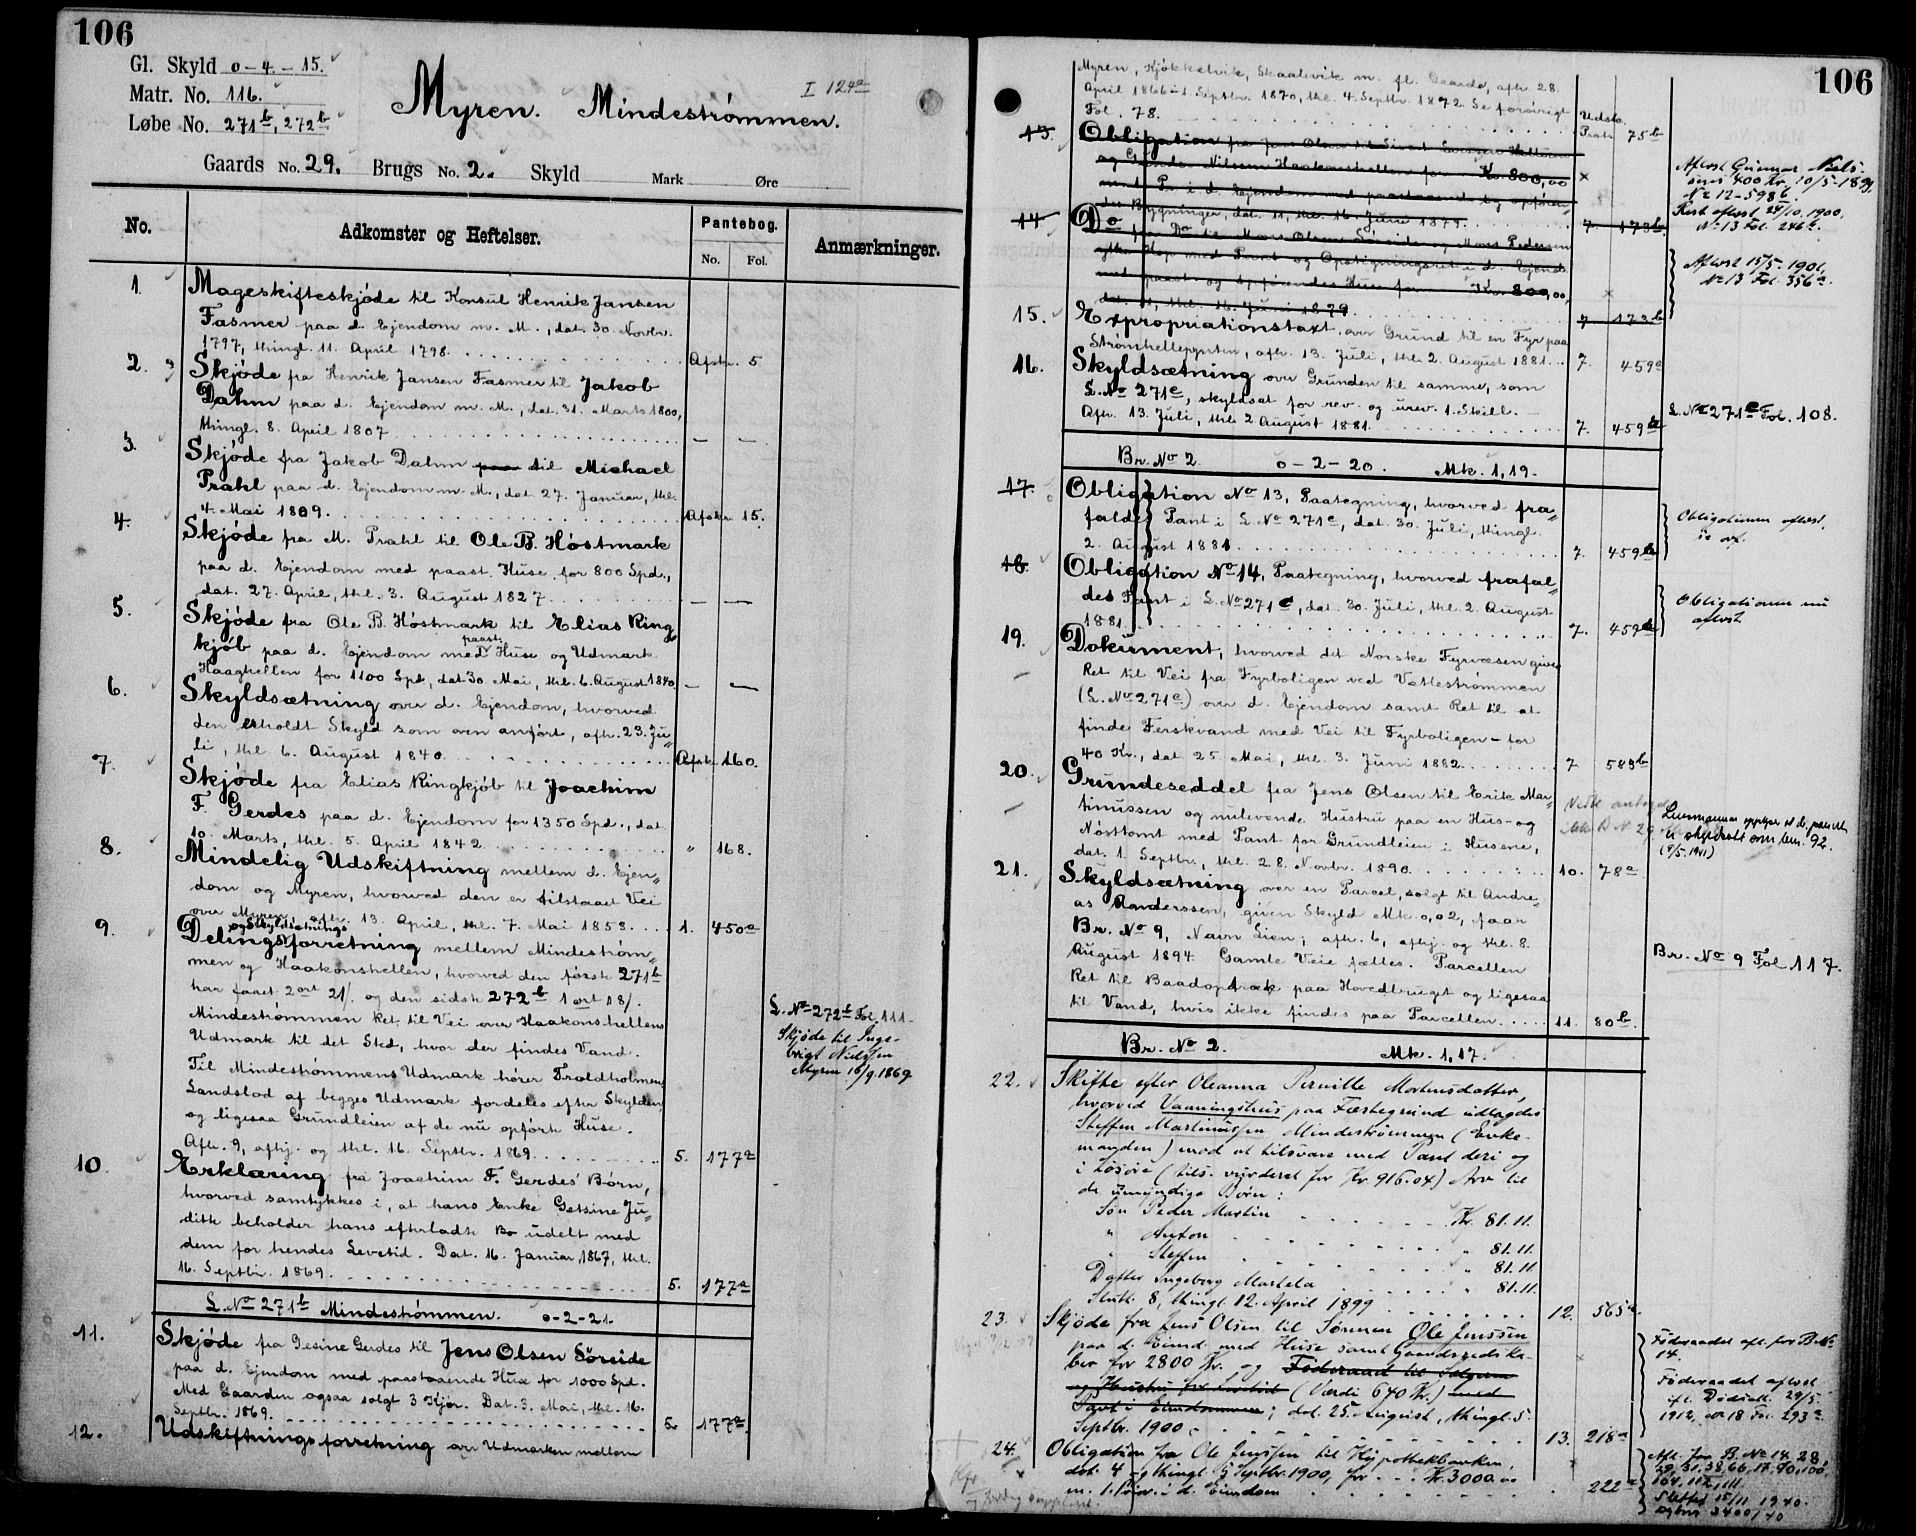 106
Gl. Skyld 0 - 4. - 15.
Matr. No. 116.
Løbe No. 271b, 272b
Myren. Mindestrømmen.
I 124a
Gaards No. 29. Brugs No. 2. Skyld Mark Øre
No. Adkomster og Heftelser. Pantebog. Anmærkninger.
No. Fol.
1. Mageskifteskjøde til Konsul Henrik Jansen
Fasmer paa d. Ejendom m. M., dat. 30. Novbr.
1797, thingl. 11. April 1798. Afskr. 5
2. Skjøde fra Henrik Jansen Fasmer til Jakob
Dahm paa d. Ejendom m. M., dat. 31. Marts 1800,
thingl. 8. April 1807 — —
3. Skjøde fra Jakob Dahm paa til Michael
Prahl paa d. Ejendom m. M., dat. 27. Januar, thl.
4. Mai 1809. Afskr. 15.
4. Skjøde fra M. Prahl til Ole B. Høstmark
paa d. Ejendom med paast. Huse for 800 Spd.,
dat. 27. April, thl. 3. August 1827 — —
5. Skjøde fra Ole B. Høstmark til Elias Ring
kjøb paa d. Ejendom med paast. Huse og Udmark
Haaghellen for 1100 Spd, dat 30 Mai, thl. 6. August 1840. — —
6. Skyldsætning over d. Ejendom, hvorved
den erholdt Skyld som oven anført, afh. 23. Ju„
li, thl 6. August 1840. Afskr. 160.
7. Skjøde fra Elias Ringkjøb til Joachim
F. Gerdes paa d. Ejendom for 1350 Spd., dat
10. Marts, thl. 5. April 1842 „ 168.
8. Mindelig Udskiftning mellem d. Ejen„
dom og Myren, hvorved den er tilstaaet Vei
over Myren, afh. 13. April, thl. 7. Mai 1853. 1. 450a
9. og Skyldsætnings
Delingsforretning mellem Mindestrøm„
men og Haakonshellen, hvorved den første 271b
har faaet 2 ort 21/. og den sidste 272b 1 ort 18/.
Mindestrømmen Ret til Vei over Haakonshellens
Udmark til det Sted, hvor der findes Vand.
Til Mindestrømmens Udmark hører Troldholmen,
Landslod af begges Udmark fordeles efter Skylden,
og ligesaa Grundleien af de nu opførte Huse.
Afh. 9, afhj. og thl. 16. Septbr. 1869. 5. 177a
L. No 272b Fol. 111.
Skjøde til Inge-
brigt Nielssen
Myren 16/9 1869
10 Erklæring fra Joachim F. Gerdes' Børn,
hvorved samtykkes i, at hans Enke Gesine Ju„
dith beholder hans efterladte Bo udelt med
dem for hendes Levetid. Dat. 16. Januar, 1867, thl.
16. Septbr. 1869. 5. 177a
L. No 271b Mindestrømmen. 0-2-21.
11. Skjøde fra Gesine Gerdes til Jens Olsen Søreide
paa d. Ejendom med paastaaende Huse for 1000 Spd.
Med Gaarden ogsaa solgt 3 Kjør. Dat. 3. Mai, thl. 16.
Septbr. 1869. 5. 177a
12. Udskiftningsforretning over Udmarken mellem
106
Myren, Kjøkkelvik, Skaalevik m. fl. Gaarde, afh. 28.
April 1866 - 1. Septbr. 1870, thl. 4. Septbr. 1872. Se forøvrigt
Fol. 78. Udsk. Prot. 75b
13. Obligation fra Jens Olsen til
og Nilsen Haakonshellen for Kr. 800,00
med Pr. i d. Ejendom med paastaaende og opfør„
des Bygninger, dat. 11, thl. 16. Juni 1879. 7. 173b
Aflyst Gunnar Niels-
sens 400 Kr. 10/5-1899.
No 12-598b.
Rest aflyst 24/10. 1900.
No 13 Fol. 246a.
14 Do fra Do til Mons Olsen Søreide og Mons Pedersen
Hop med Pant og Opsigningsret i d. Ejend.
med paast. og opførendes Huse for Kr. 800,00,
dat. 11, thl. 16. Juni 1879 7. 173b
Aflyst 15/5. 1901,
No 13 Fol. 356a.
15. Expropriationstaxt, over Grund til en Fyr paa
Strømhellepynten, afh. 13. Juli, thl. 2. August 1881. 7. 459a
16. Skyldsætning over Grunden til samme, som
L. No 271c, skyldsat for rev. og urev. 1. Skill. —
Afh. 13. Juli, thl. 2 August 1881. 7. 459b
L. No 271c Fol. 108.
Br. No 2 0-2-20. Mk. 1,19.
17. Obligation No 13, Paategning, hvorved fra„
faldes Pant i L. No 271c, dat. 30. Juli, thingl.
2. August 1881. 7. 459b
Obligationen aflyst,
se ov.
18. Obligation No 14, Paategning, hvorved frafal
des Pant i L. No 271c, dat. 30. Juli, thl. 2. August
1881. 7. 459b
Obligationen nu
aflyst
19. Dokument, hvorved det Norske Fyrvæsen gives
Ret til Vei fra Fyrboligen ved Vatlestrømmen
(L. No 271c) over d. Ejendom samt Ret til at
finde Ferskvand med Vei til Fyrboligen - for
40 Kr., dat 25 Mai, thl. 3. Juni 1882. 7 583b
20. Grundeseddel fra Jens Olsen til Erik Mar„
tinussen og nulevende Hustru paa en Hus- og
Nøsttomt med Pant for Grundleien i Husene,
dat. 1. Septbr., thl. 28. Novbr. 1890. 10. 78a
er skyldsatt som bnr. 92.
(9/5.1911)
21. Skyldsætning over en Parcel, solgt til Andre„
as Anderssen, given Skyld Mk. 0,02, faar
Br. No 9, Navn Lien; afh. 6, afhj. og thl. 8.
August 1894. Gamle Veie fælles. Parcellen
Ret til Baadoptræk paa Hovedbruget og ligesaa
til Vand, hvis ikke findes paa Parcellen. 11. 80b.
Br. No 9 Fol. 117.
Br. No 2. Mk. 1,17.
22. Skifte efter Oleanna Pernille Mortensdatter,
hvorved Vaaningshus paa Fæstegrund udlagdes
Steffen Martinussen Mindestrømmen (Enke-
manden) mod at tilsvare med Pant deri og
i Løsøre (tils. vurderet for Kr 916.04) Arv til
de umyndige Børn:
Søn Peder Martin Kr. 81.11.
„ Anton „ 81.11.
„ Steffen „ 81.11.
Datter Ingeborg Martela „ 81.11.
Slutt. 8, thingl. 12. April 1899 12. 565a.
23. Skjøde fra Jens Olsen til Sønnen Ole Jenssen
paa d. Eiend. med Huse samt Gaardsredska-
ber for 2800 Kr. og Føderaad til Selgeren
og Hustru for Livstid (Værdi 640 Kr.) med
Pant i Eiendommen; dat. 25. August, thingl. 5.
Septbr. 1900. 13. 218a
Føderaadet afl. for B.No
14.
Føderaadet aflyst
ifl. Dødsatt. 29/5
1912, No 18 Fol. 293a.
24. Obligation fra Ole Jenssen til Hypothekbanken,
dat. 4 og thingl. 5 Septbr. 1900, for Kr. 3000.00
m. 1. Prior. i d. Eiendom . 222a
Afl. for B. No 14, 28,
Slettet 15/11 1940.
Dgbnr 3400/40